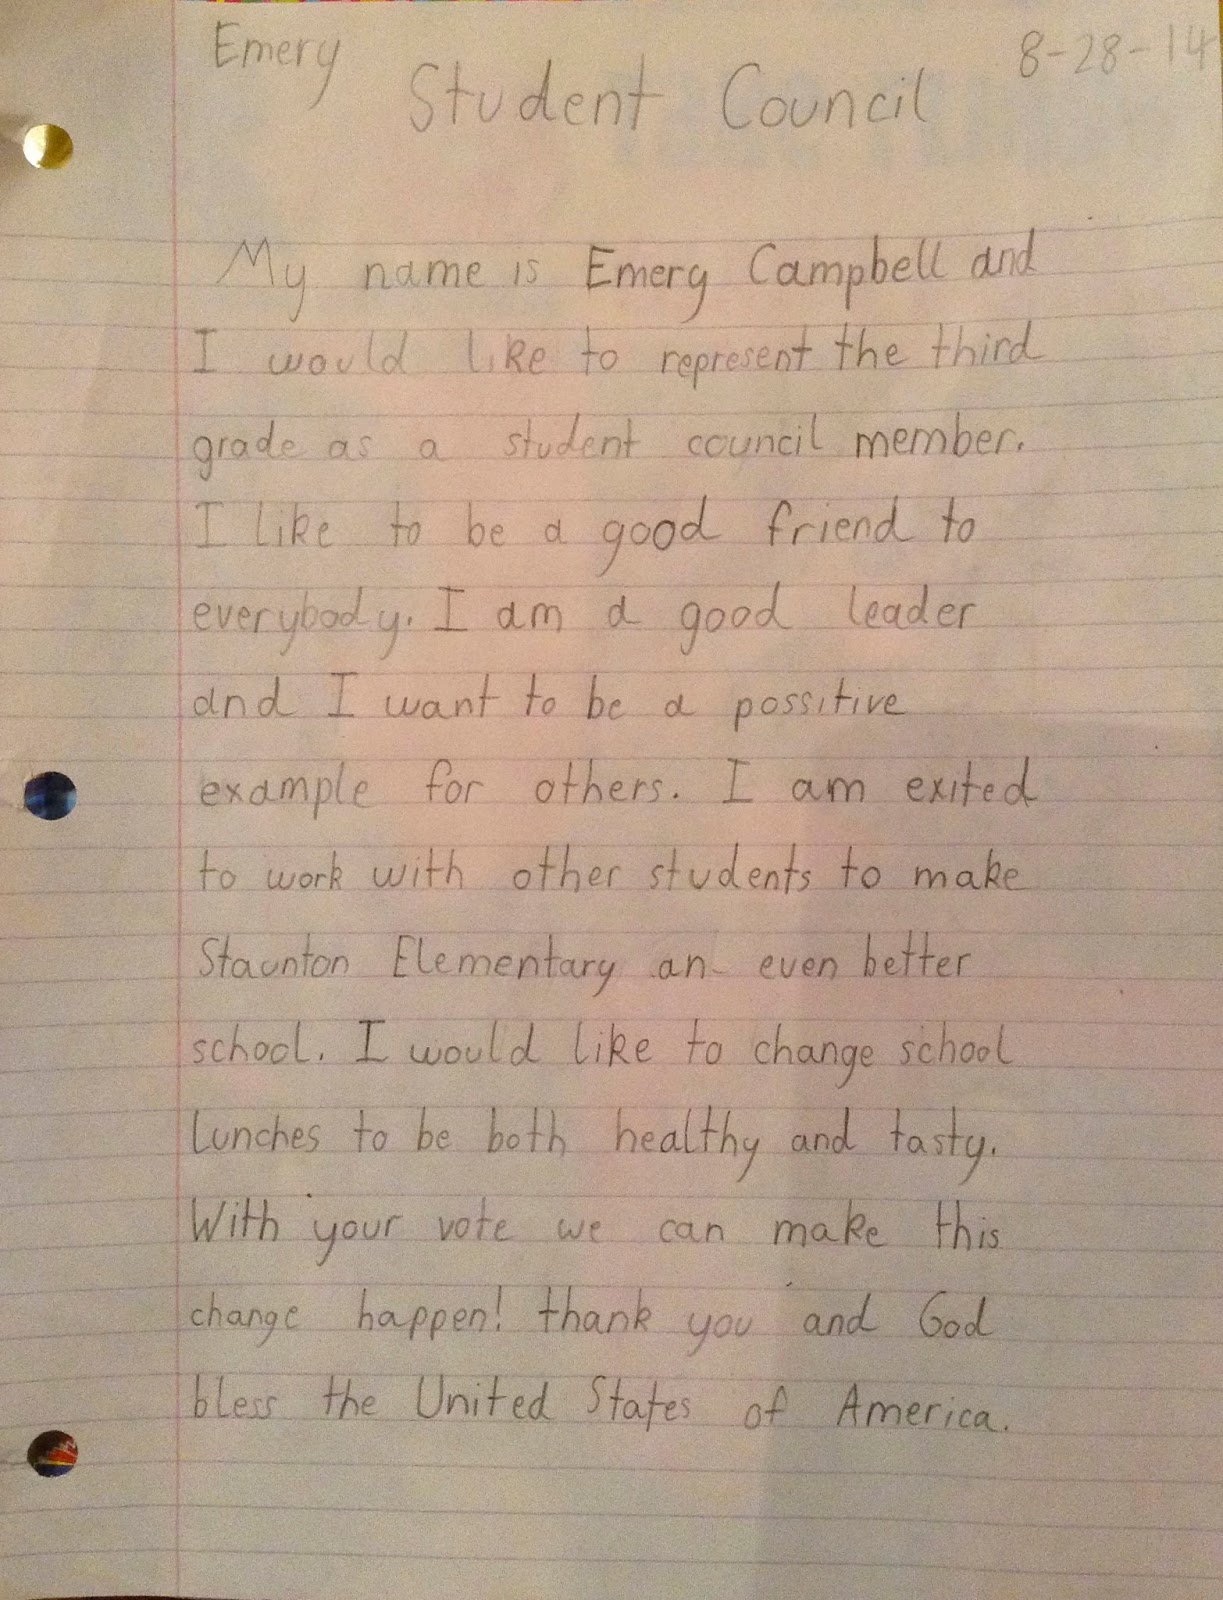 Emery 8-28-14
Student Council
My name is Emery Campbell and
I would like to represent the third
grade as a student council member.
I like to be a good friend to
everybody. I am a good leader
and I want to be a possitive
example for others. I am exited
to work with other students to make
Staunton Elementary an even better
school. I would like to change school
lunches to be both healthy and tasty.
With your vote we can make this
change happen! thank you and God
bless the United States of America.